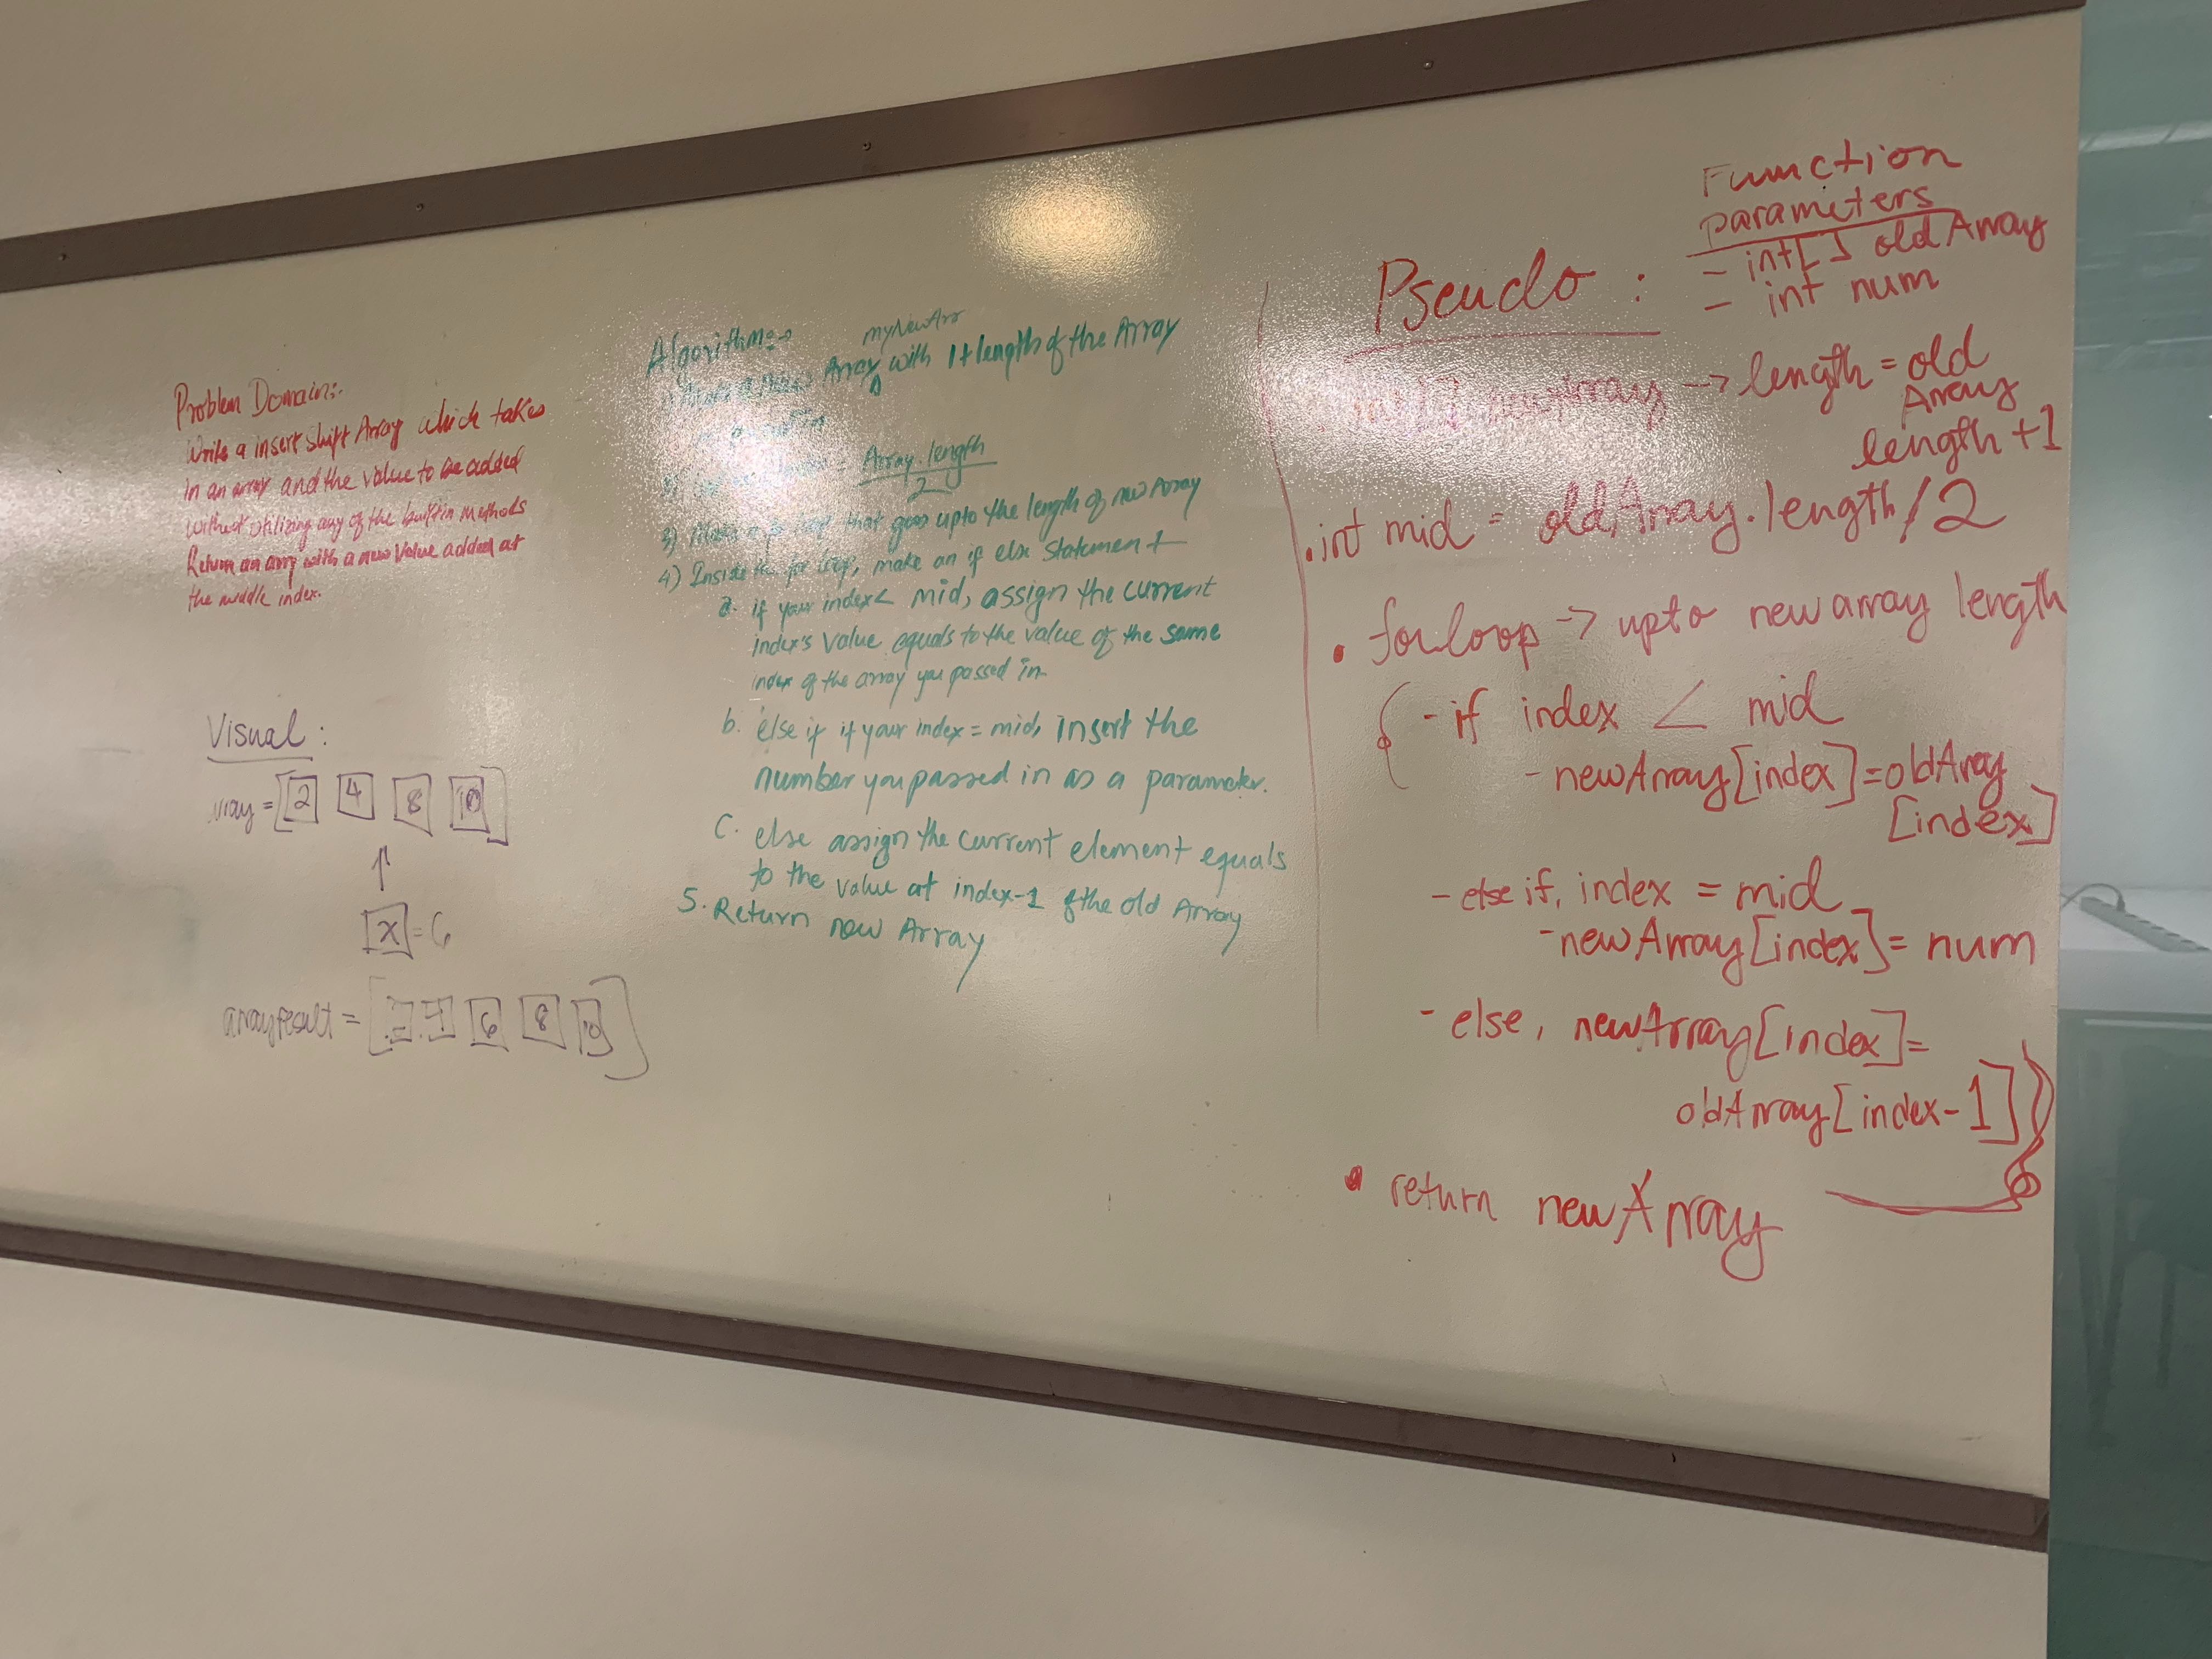 Problem Domain:-
Write a insert shift Array which takes
in an array and the value to be added
without utilizing any of the builtin methods
Return an array with a new value added at
the middle index.
Visual :
rray = [ 2 4 8 10 ]
↑
x = 6
array result = [ 2 4 6 8 10 ]
Algorithm:→
myNewArr
1) Make a new Array ^ with 1+length of the Array
= Array.length
2
3) Make a for loop that goes upto the length of new Array
4) Inside the for loop, make an if else Statement
a. if your index < mid, assign the current
index's value equals to the value of the same
index of the array you passed in
b. else if if your index = mid, insert the
number you passed in as a parameter.
C. else assign the current element equals
to the value at index-1 of the old Array
5. Return new Array
Pseudo :
Function
parameters
- int[] oldArray
- int num
int[] newArray → length = old
Array
length +1
. int mid = oldArray.length/2
• for loop → upto new array length
{ - if index < mid
- newArray[index]=oldArray
[index]
- else if, index = mid
- newArray[index]= num
- else, newArray[index]=
oldArray[index-1] }
• return newArray